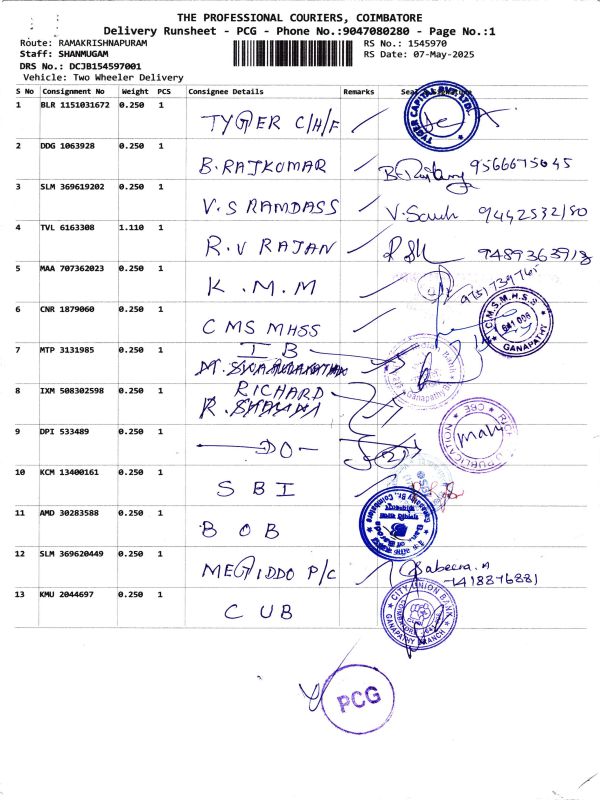 THE PROFESSIONAL COURIERS, COIMBATORE
Delivery Runsheet - PCG - Phone No.:9047080280 - Page No.:1
Route: RAMAKRISHNAPURAM
RS No.: 1545970
Staff: SHANMUGAM
RS Date: 07-May-2025
DRS No.: DCJB154597001
Vehicle: Two Wheeler Delivery
S No Consignment No Weight PCS Consignee Details Remarks
1 BLR 1151031672 0.250 1 TYGER C/H/F
TYGER CAPITAL PVT. LTD.
2 DDG 1063928 0.250 1 B.RAJKUMAR 9566675645
3 SLM 369619202 0.250 1 V.S RAMDASS 9442532180
4 TVL 6163308 1.110 1 R.V RAJAN
5 MAA 707362023 0.250 1 K.M.M
6 CNR 1879060 0.250 1 CMS MHSS
C.M.S.M.H.S.S
641 006
GANAPATHY
7 MTP 3131985 0.250 1 I B
8 IXM 508302598 0.250 1 RICHARD
9 DPI 533489 0.250 1 DO
10 KCM 13400161 0.250 1 SBI
11 AMD 30283588 0.250 1 BOB
12 SLM 369620449 0.250 1 MEGIDDO P/C
13 KMU 2044697 0.250 1 CUB
CITY UNION BANK
GANAPATHY BRANCH
PCG